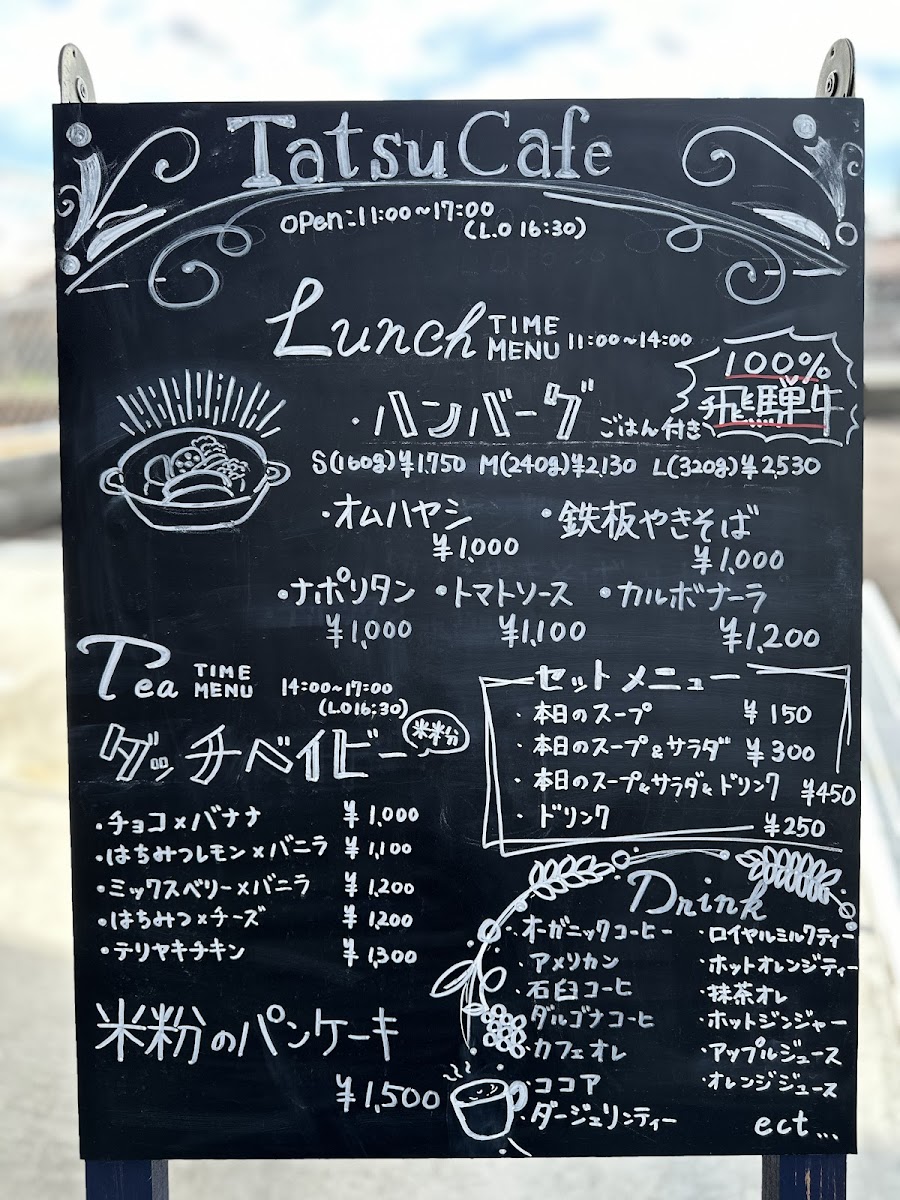 Tatsu Cafe
OPen:11:00~17:00
(L.O 16:30)
Lunch TIME MENU 11:00~14:00
100%
飛騨牛
・ハンバーグ ごはん付き
S(160g)¥1.750 M(240g)¥2,130 L(320g)¥2,530
・オムハヤシ
¥1,000
・鉄板やきそば
¥1,000
・ナポリタン ・トマトソース ・カルボナーラ
¥1,000 ¥1,100 ¥1,200
Tea TIME MENU 14:00~17:00
(LO16:30)
ダッチベイビー 米粉
・チョコ×バナナ ¥1,000
・はちみつレモン×バニラ ¥1,100
・ミックスベリー×バニラ ¥1,200
・はちみつ×チーズ ¥1,200
・テリヤキチキン ¥1,300
米粉のパンケーキ
¥1,500
セットメニュー
・本日のスープ ¥150
・本日のスープ&サラダ ¥300
・本日のスープ&サラダ&ドリンク ¥450
・ドリンク ¥250
Drink
・オーガニックコーヒー
・アメリカン
・石臼コーヒ
・ダルゴナコーヒ
・カフェオレ
・ココア
・ダージェリンティー
・ロイヤルミルクティー
・ホットオレンジティー
・抹茶オレ
・ホットジンジャー
・アップルジュース
・オレンジジュース
ect...